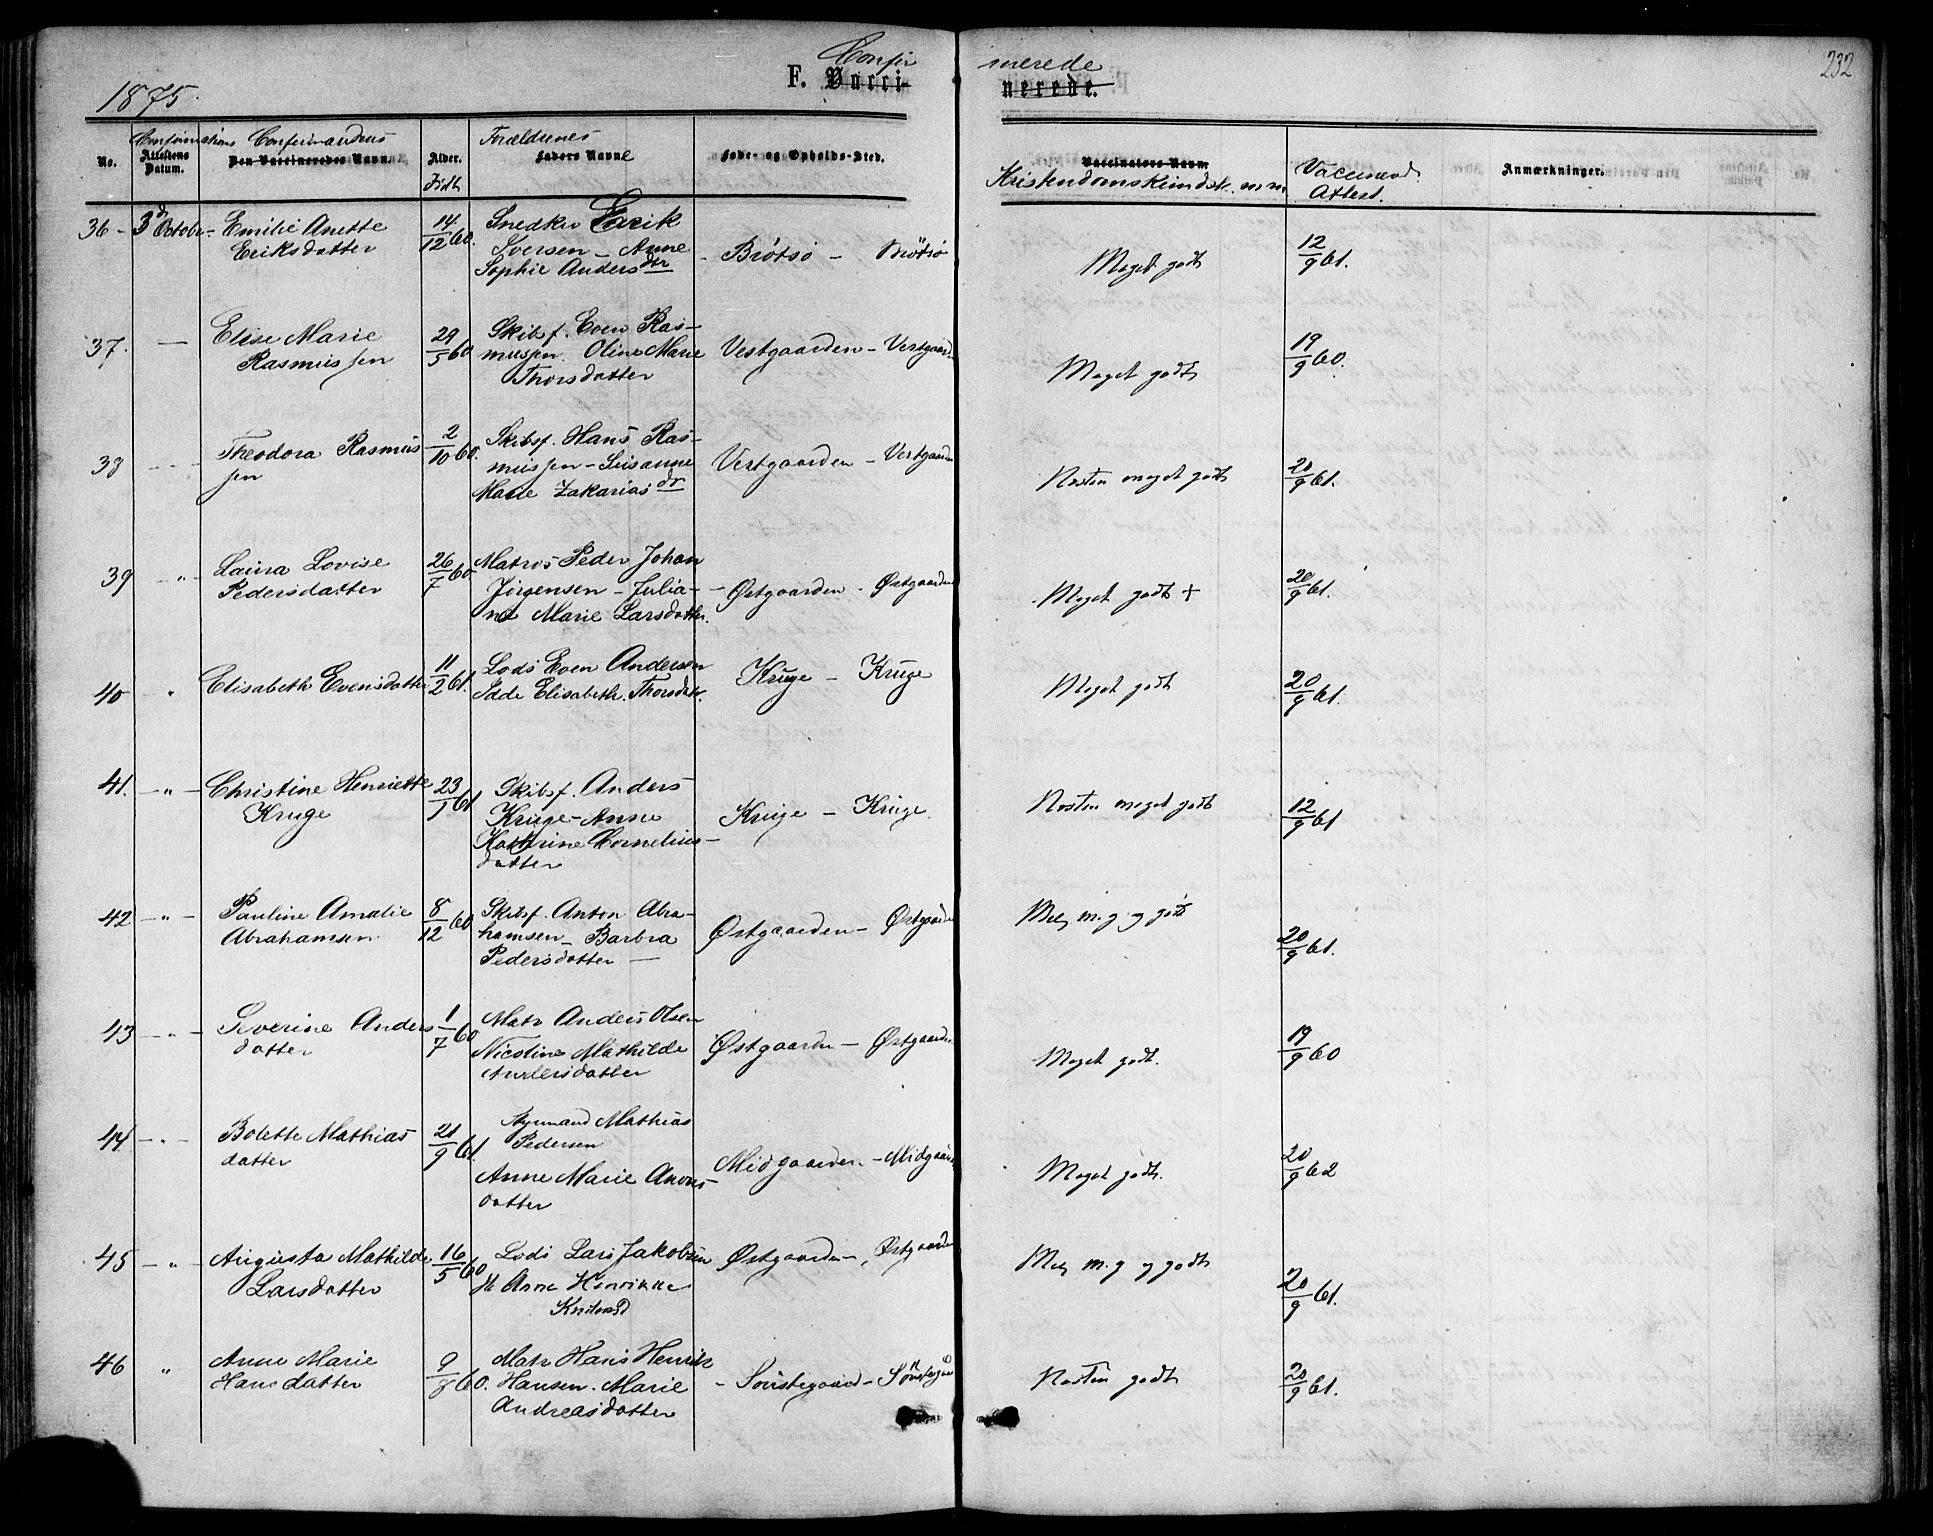 1875.
Confir
merede
232
F. Vacci-
nerede.
Confirmations
Confirmandens
Forældrenes
No.
Attestens Datum.
Den Vaccineredes Navn.
Alder.
Født
Faders Navne
Føde- og Opholds-Sted.
Vaccinators Navn.
Kristendomskundsk. m m
Vaccinered.
Attest.
Anmærkninger.
36 - 3d October - Emilie Anette 14/12 60. Snedker Erik
Eriksdatter Iversen - Anne - Brøtsø - Brøtsø Meget godt 12/9 61.
Sophie Andersdtr
37. — Elise Marie 29/5 60 Skibsf. Even Ras-
Rasmussen mussen. Oline Marie Vestgaarden - Vestgaard Meget godt 19/9 60.
Thorsdatter
38 - - - Theodora Rasmus 2/10 60. Skibsf. Hans Ras-
sen mussen - Susanne Vestgaarden - Vestgaarden Næsten meget godt 20/9 61.
Marie Zakariasdr
39 - " - Laura Lovise 26/7 60 Matros Peder Johan
Pedersdatter Jörgensen - Julia- - Østgaarden - Østgaarden Meget godt + 20/9 61.
ne Marie Larsdatter.
40 " Elisabeth Evensdatter 11/2 61. Lods Even Andersen Kruge - Kruge Meget godt 20/9 61.
Idde Elisabeth Thorsdatr.
41. - " - Christine Henriette 23/1 61 Skibsf. Anders
Kruge Kruge - Anne Kruge - Kruge. Næsten meget godt 12/9 61
Kathrine Cornelius-
datter
42 - " - Pauline Amalie 8/12 60 Skibsf. Anton Abra-
Abrahamsen hamsen - Barbra Østgaarden - Østgaarde m. g. og godt 20/9 61.
Pedersdatter —
43 - " - Severine Anders- 1/7 60 Matr Anders Olsen
datter Nicoline Mathilde Østgaarden - Østgaarden Meget godt. 19/9 60
Andersdatter
44 - " - Bolette Mathias 21/9 61. Styrmand Mathias
datter Pedersen Midgaarden - Midgaard Meget godt. 20/9 62
Anne Marie
datter
45 - " - Augusta Mathilde 16/5 60 Lods Lars Jakobsen Østgaarden -, Østgaarden m. g og godt
Larsdatter Anne Henrikke 20/9 61.
46 " Anne Marie 9/8 60. Matr Hans Henrik
Hansdatter Hansen. Marie - Søndregaard - Næsten godt 20/9 61.
Andreasdatter